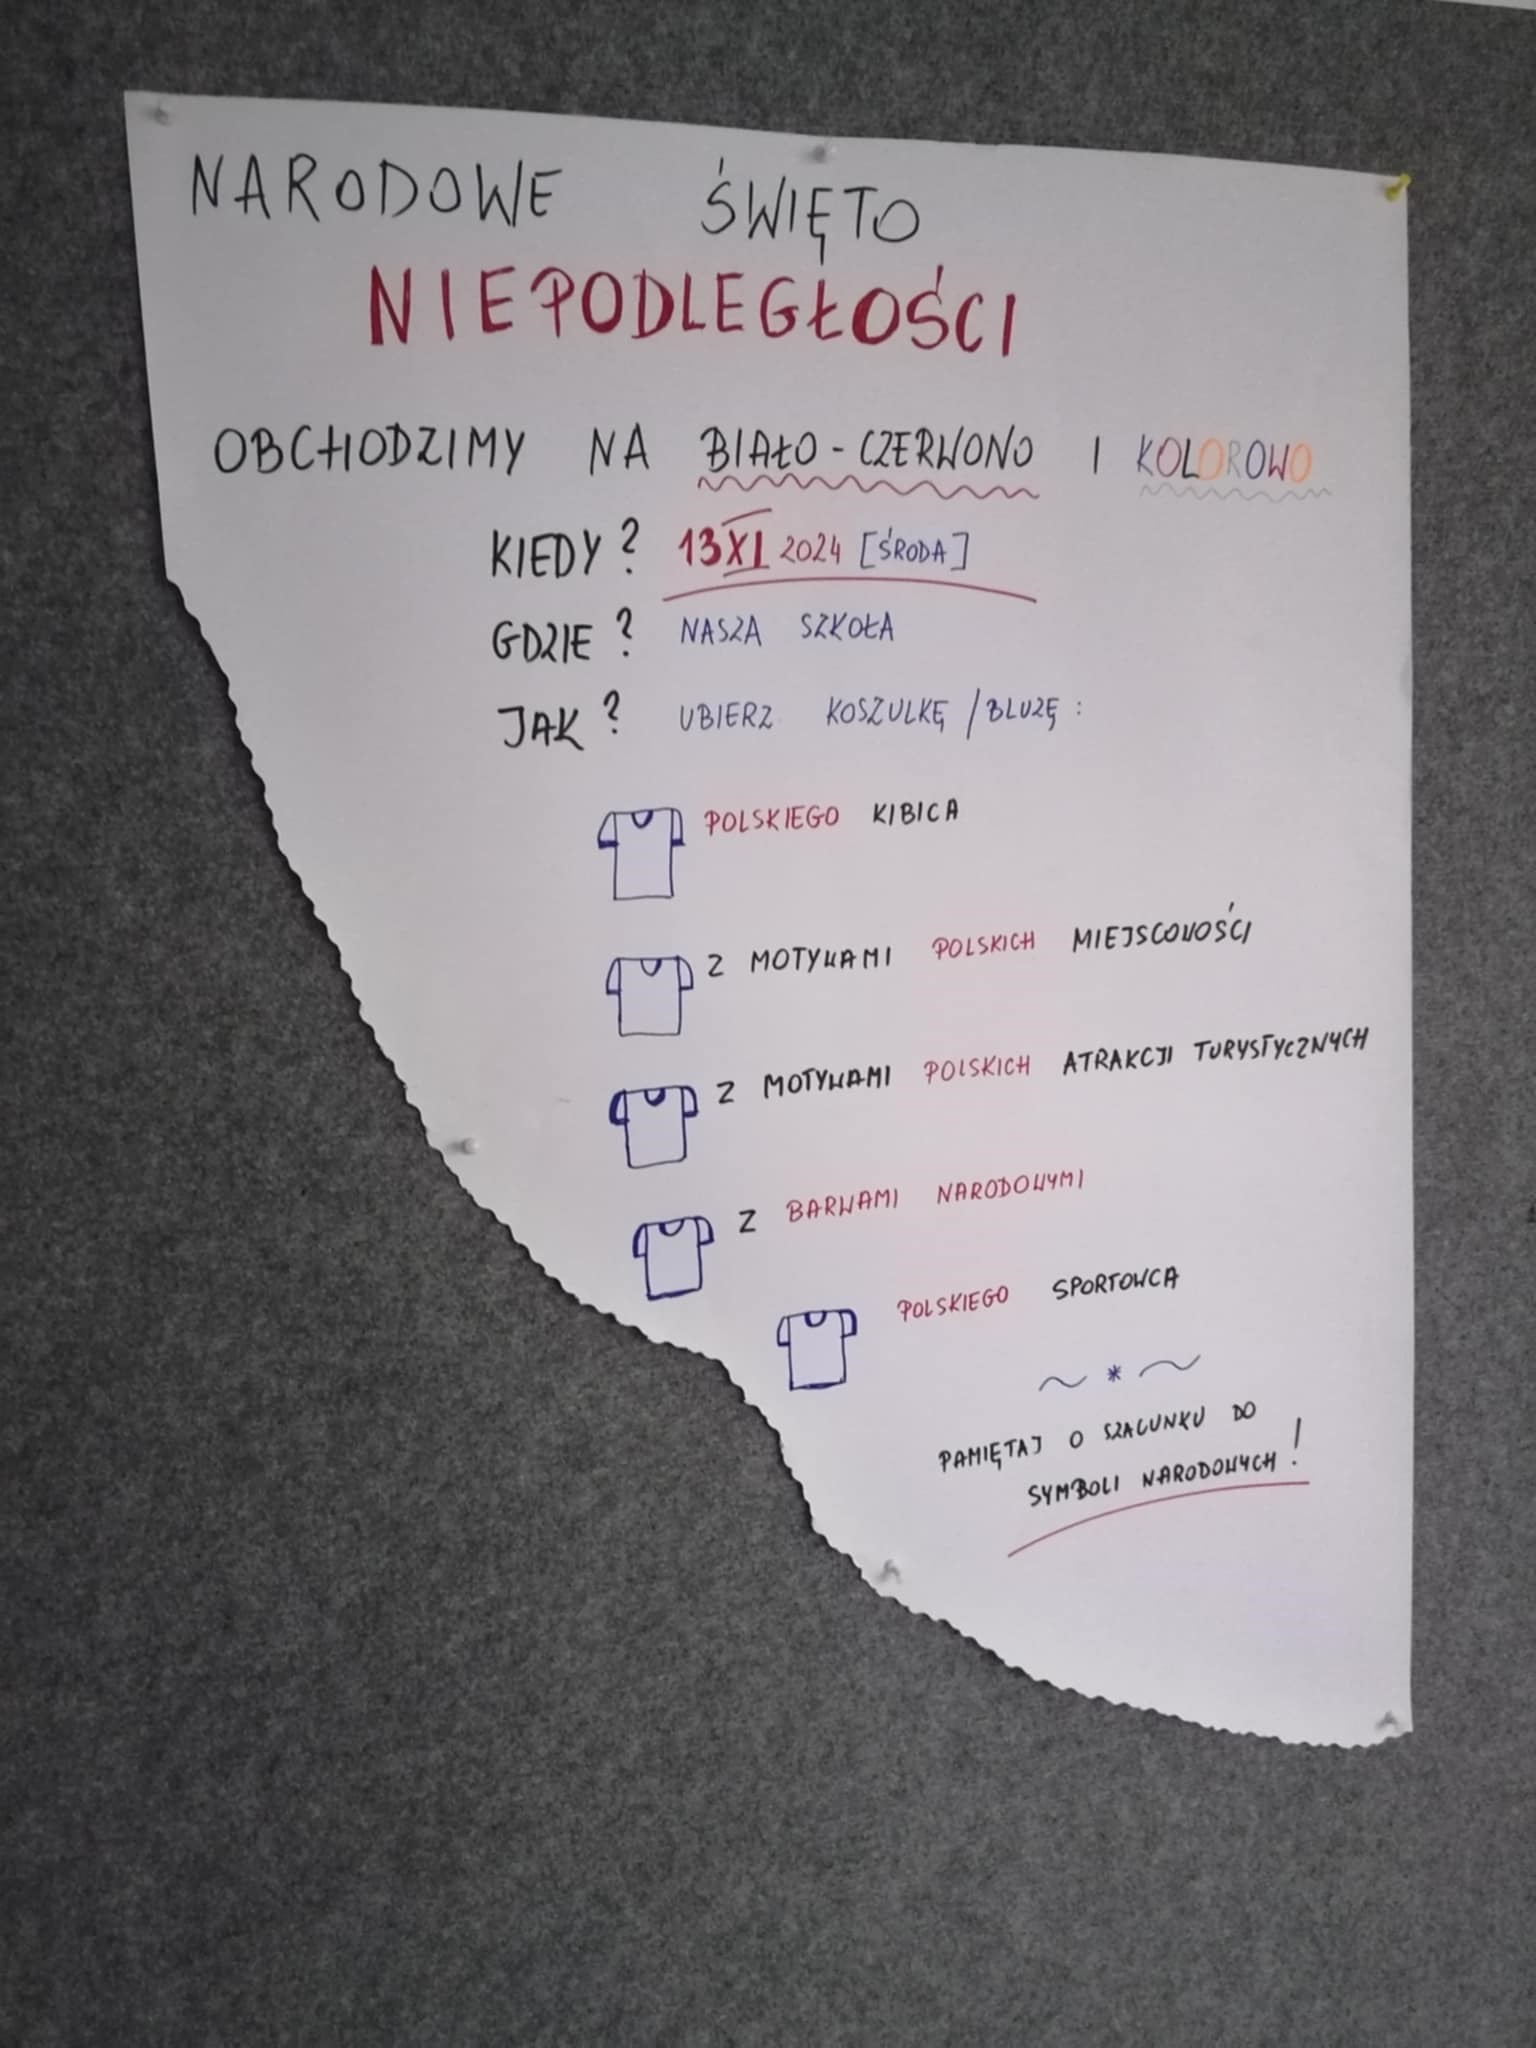 NARODOWE ŚWIĘTO
NIEPODLEGŁOŚCI
OBCHODZIMY NA BIAŁO-CZERWONO I KOLOROWO
KIEDY? 13 XI 2024 [ŚRODA]
GDZIE? NASZA SZKOŁA
JAK? UBIERZ KOSZULKĘ/BLUZĘ:
POLSKIEGO KIBICA
Z MOTYWAMI POLSKICH MIEJSCOWOŚCI
Z MOTYWAMI POLSKICH ATRAKCJI TURYSTYCZNYCH
Z BARWAMI NARODOWYMI
POLSKIEGO SPORTOWCA
~ * ~
PAMIĘTAJ O SZACUNKU DO
SYMBOLI NARODOWYCH!